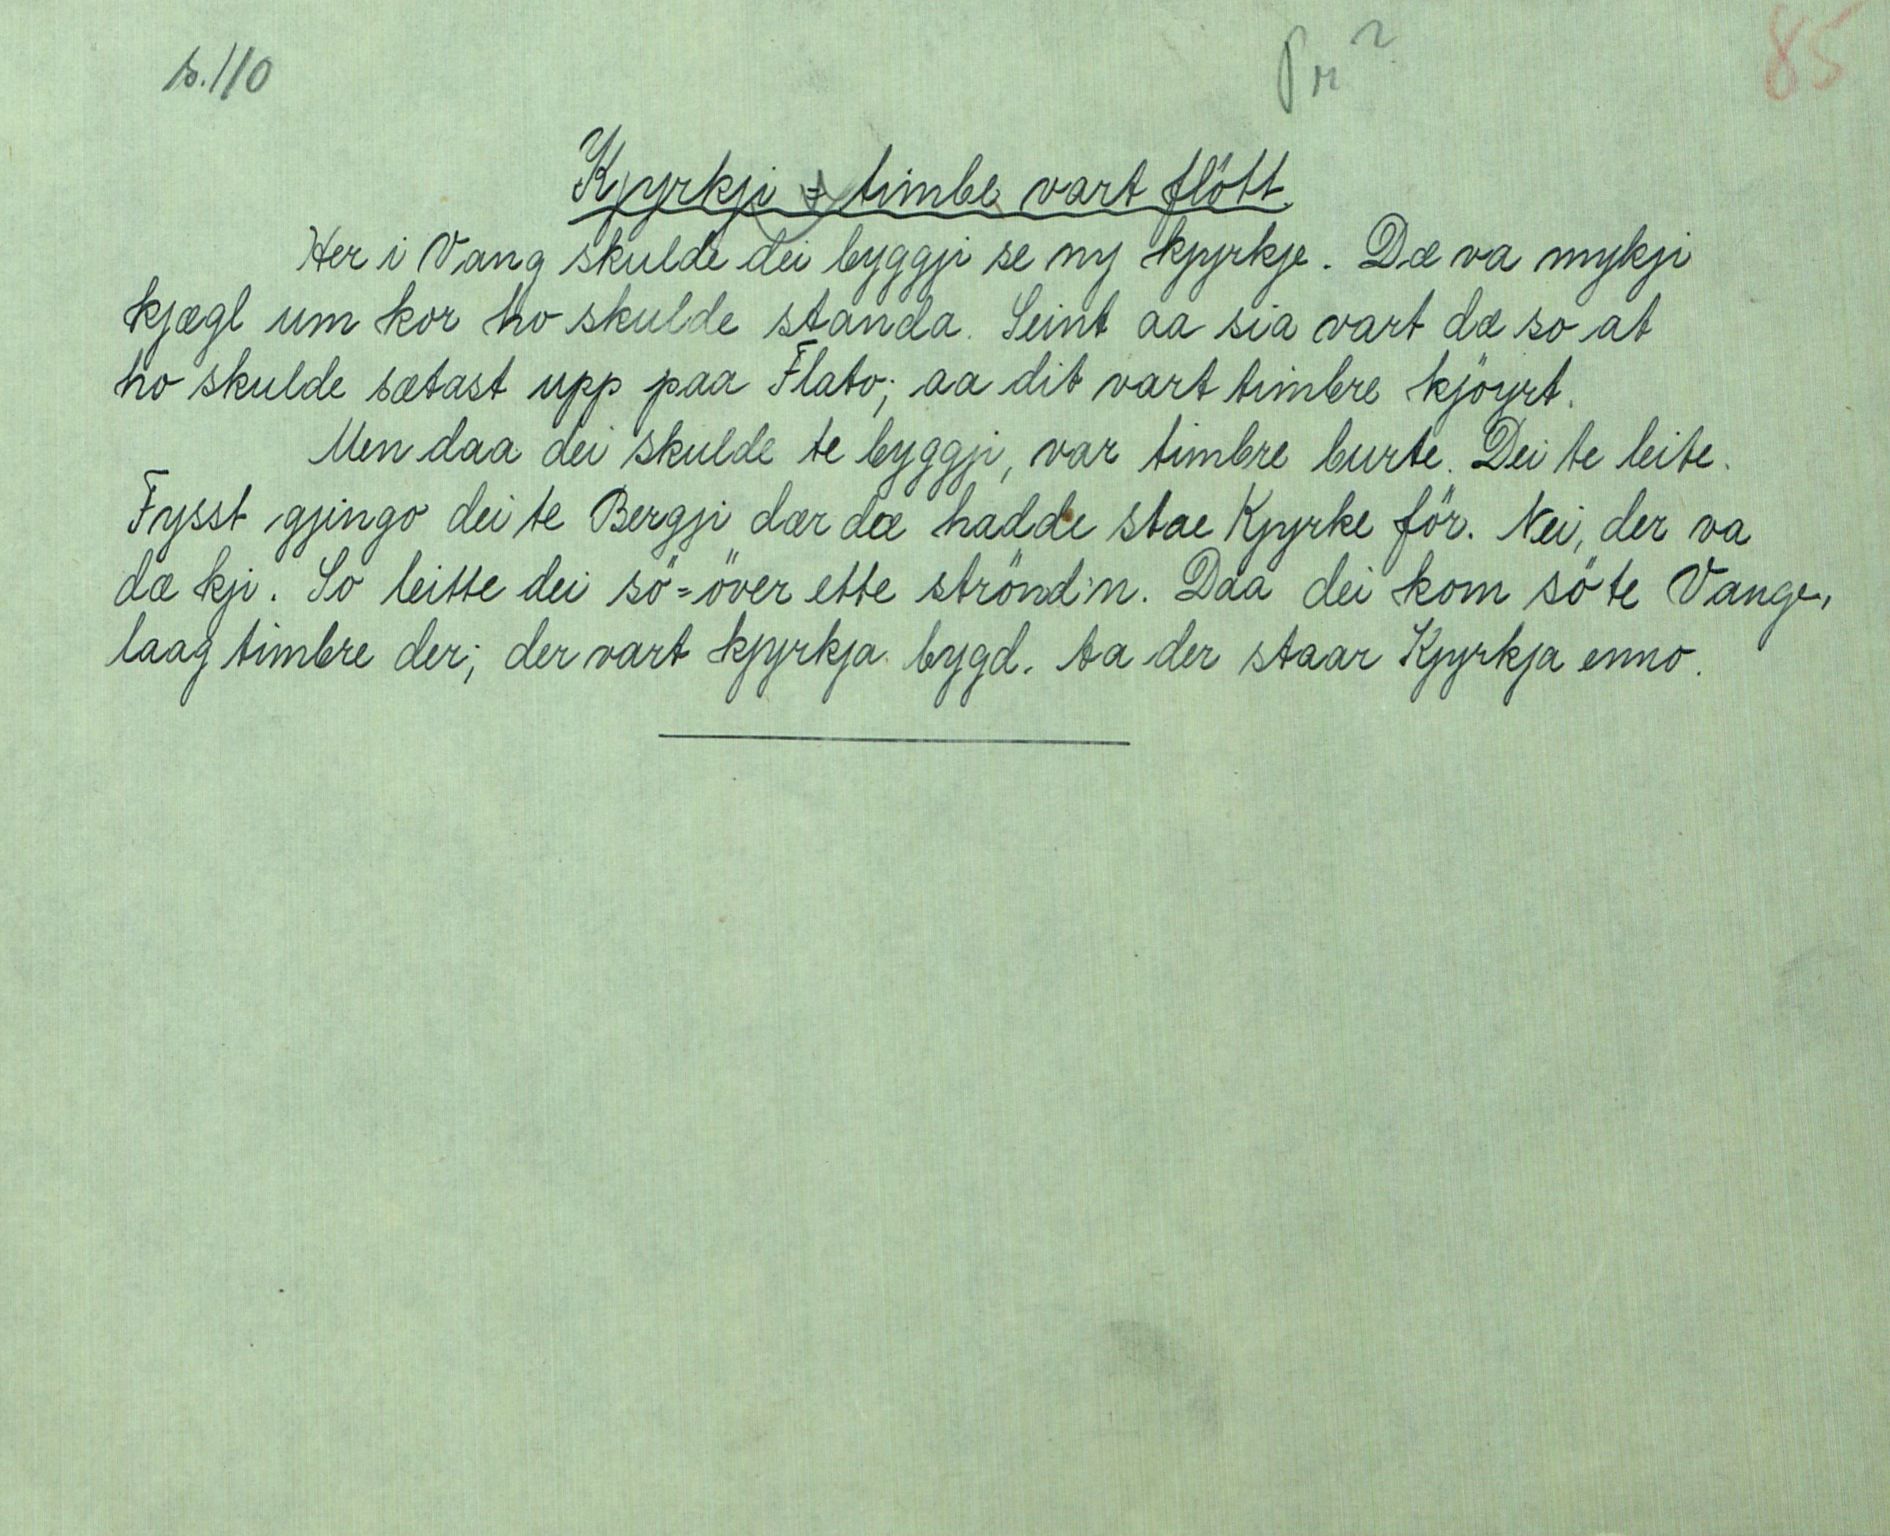 s. 110
Pr?
85
Kjyrkji = timbe vart flött.
Her i Vang skulde dei byggji se ny kjyrkje. Dæ va mykji
kjægl um kor ho skulde standa. Seint aa sia vart dæ so at
ho skulde sætast upp paa Flato; aa dit vart timbre kjöyrt.
Men daa dei skulde te byggji, var timbre burte. Dei te leite.
Fysst gjingo dei te Bergji dær dæ hadde stae Kjyrke för. Nei, der va
dæ kji. So leitte dei sö=över ette strönd'n. Daa dei kom sö te Vange,
laag timbre der; der vart kjyrkja bygd. Aa der staar Kjyrkja enno.